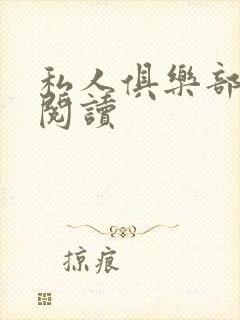 私人俱樂部
閱讀
掠痕